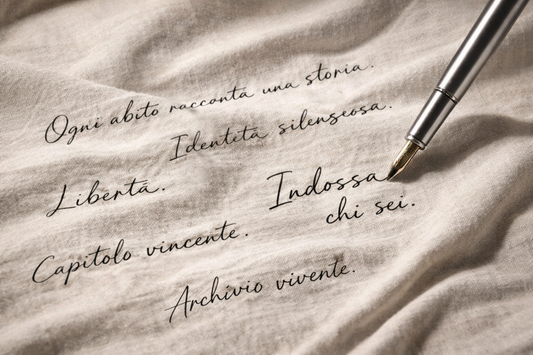 Ogni abito racconta una storia.
Identità silenseosa.
Libertà.
Indossa
chi sei.
Capitolo vincente.
Archivio vivente.